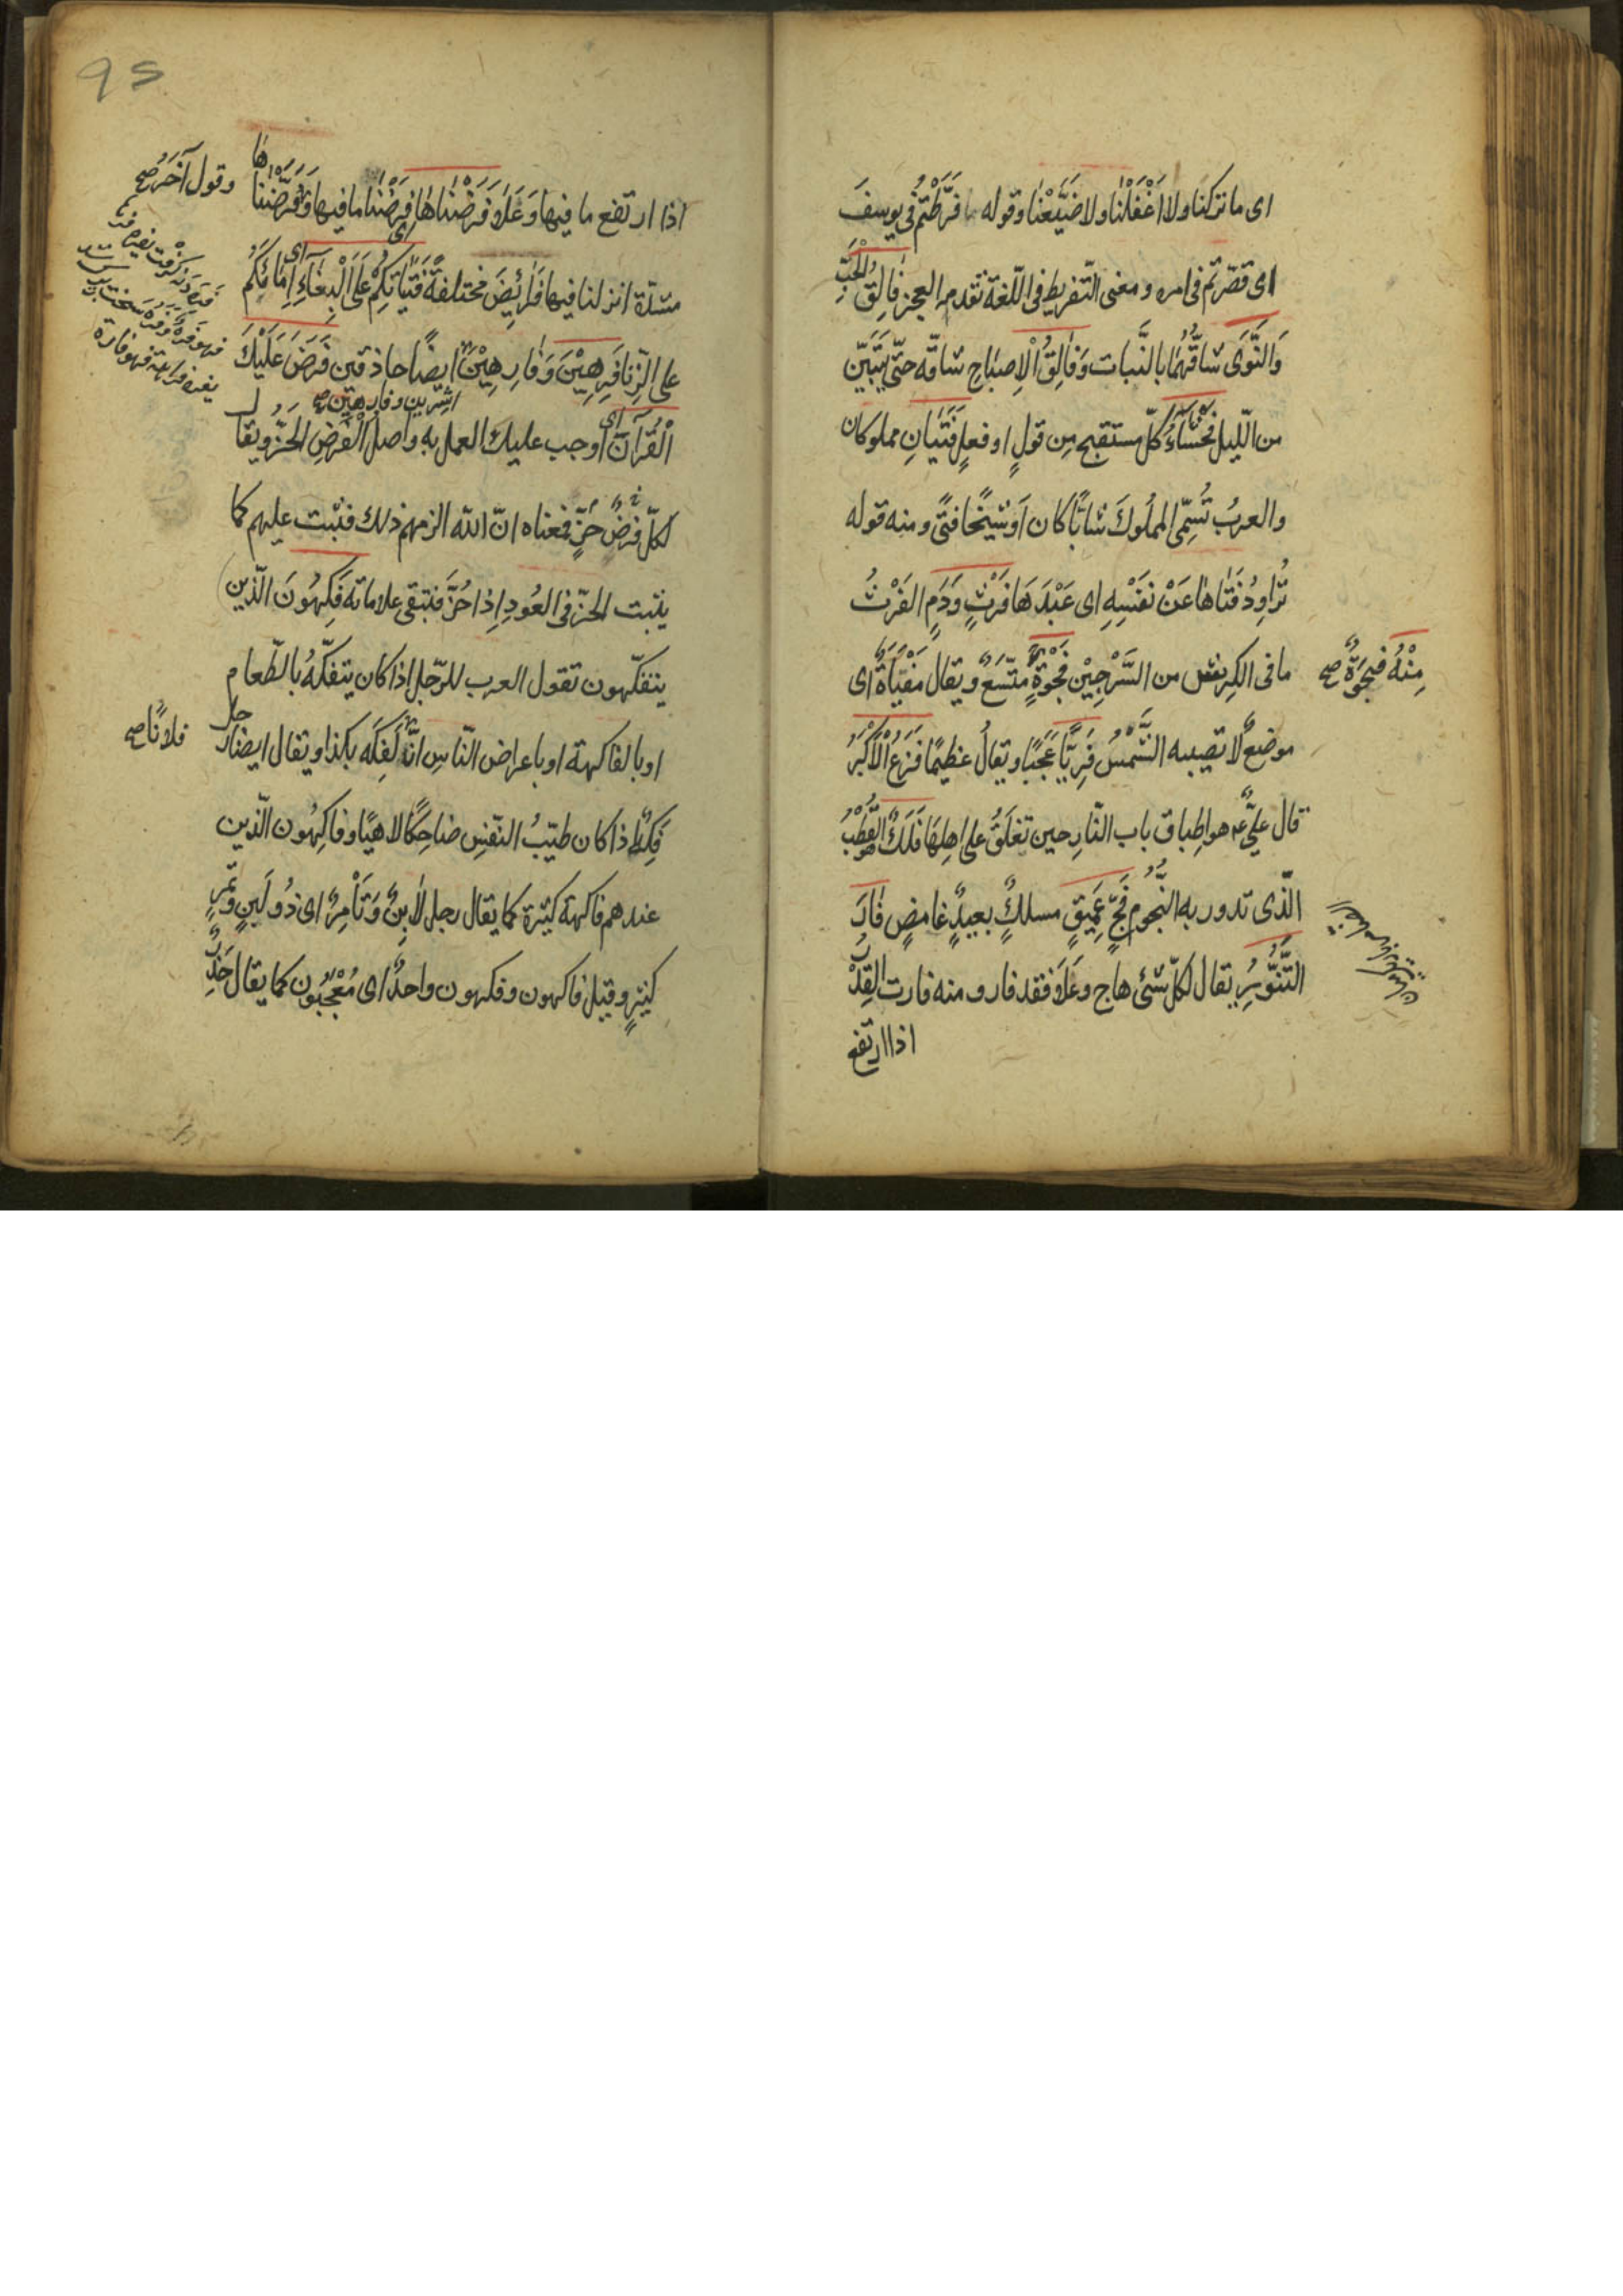 اى ما تركنا ولا اَغْفَلْنا ولا ضَيَّعْنا وقوله ما فَرَّطْتُمْ فى يوسفَ
اى قصّرتم فى امره ومعنى التّفريط فى اللّغة تقدمه العجز فَالِقُ الْحَبِّ
وَالنَّوَى شاقّهُما بالنّبات وَفَالِقُ الْاِصبَاحِ شاقّه حتّى يَتَبَيَّن
من اللّيل فَحْشَاءُ كلّ مستقبح مِن قولٍ او فعلٍ فَتَيَانِ مملوكان
والعربُ تُسَمِّى المملُوكَ شابّاً كان اَو شَيْخًا فتًى ومنه قوله
تُرَاوِدُ فَتَاهَا عَنْ نَفْسِهِ اى عَبْدَهَا فَرْثٍ وَدَمٍ الفَرْثُ
ما فى الكرش من السَّرْجِيْنِ فَجْوَةٍ مُتّسَعٌ ويقال مَفْيَاَةٌ اى
مِنْهُ فَجْوَةٌ صح
موضعٌ لا تصيبه الشَّمْسُ فَرِيًّا عَجَبًا ويقالُ عظيمًا فَزَعُ الْاَكْبَرُ
قال علىٌّ ع هو اطباق باب النّار حين تغلَقُ على اهلها فَلَكٌ القُطْبُ
الّذى تدور به النُّجُوم فَجٍّ عَمِيقٍ مسلكٌ بعيدٌ غامضٍ فَارَ
التَّنُّورُ يقال لكلّ شئ هاج وعَلَا فقد فار ومنه فارت القِدْرُ
اذا ارتفع
95
اذا ارتفع ما فيها وَعَلَا وَفَرَضْنَاهَا فَرَضْنَا ما فيها وَفَرَّضْنَاهَا
وقول آخَرُ صح
مثلة انزلنا فيها فَرائِضَ مختلفةً فَتَيَاتِكُمْ عَلَى الْبِغَاءِ اى اِمَائَكُمْ
على الزّنا فَرِهِيْنَ وَفَارِهِيْنَ ايضًا حاذقين فَرَضَ عَلَيْكَ
اشرين وفارهين صح
الْقُرْآنَ اى اوجب عليك العمل به واصل الْفَرْضِ الحَزُّ ويقال
لكلّ فَرْضٌ حَزٍّ فمعناه انّ اللّه الزمهم ذلك فثبت عليهم كما
يثبت الحَزّ فى العُودِ اِذا حُزَّ فتبقى علاماته فَكِهُونَ الّذين
يتفكّهون تقول العرب للرّجل اذا كان يتفكّهُ بالطّعام
او بالفاكهة او باعراض النّاسِ انَّ لَفَكِه بكذا ويقال ايضا رجل
فلانًا صح
فَكِهٌ اذا كان طيّبُ النّفسِ ضاحِكًا لاهيًا وفاكِهُون الّذين
عندهم فاكهة كثيرة كما يقال رجل لابِنٌ وَتَأمِرٌ اى ذُو لَبَنٍ وتَمْرٍ
كثيرٍ وقيل فاكهون وفكهون واحدٌ اى مُعْجَبُون كما يقال حَذِرٌ